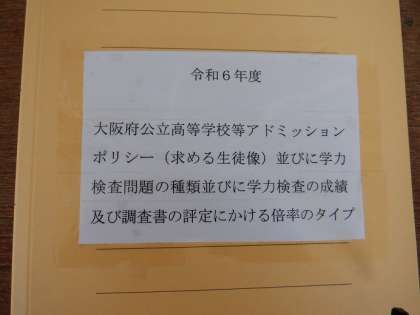 令和6年度
大阪府公立高等学校等アドミッション
ポリシー（求める生徒像）並びに学力
検査問題の種類並びに学力検査の成績
及び調査書の評定にかける倍率のタイプ